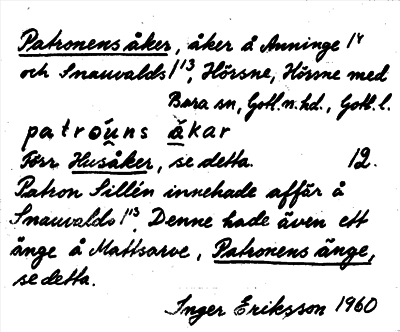 Patronens åker, åker å Anninge 1⁴
och Snauvalds 1¹³, Hörsne, Hörsne med
Bara sn, Gotl.n.hd., Gotl.l.
patrǫ́u̯ns ā̱kar
Förr Husåker, se detta. 12.
Patron Sillén innehade affär å
Snauvalds 1¹³. Denne hade även ett
änge å Mattsarve, Patronens änge,
se detta.
Inger Eriksson 1960